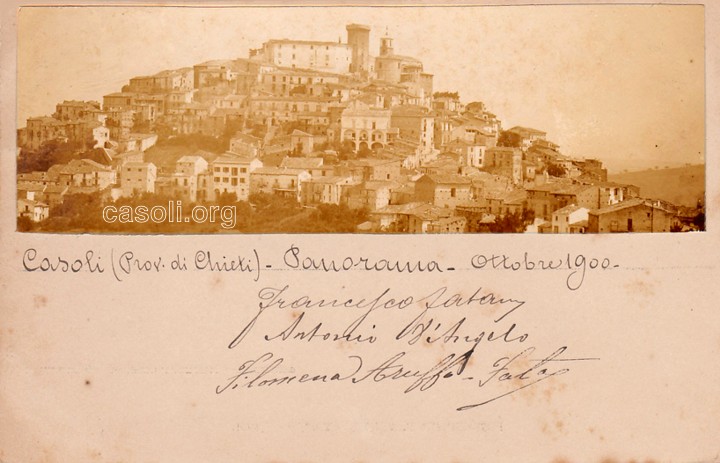 casoli.org
Casoli (Prov. di Chieti) - Panorama - Ottobre 1900.
Francesco
Antonio D'Angelo
Filomena